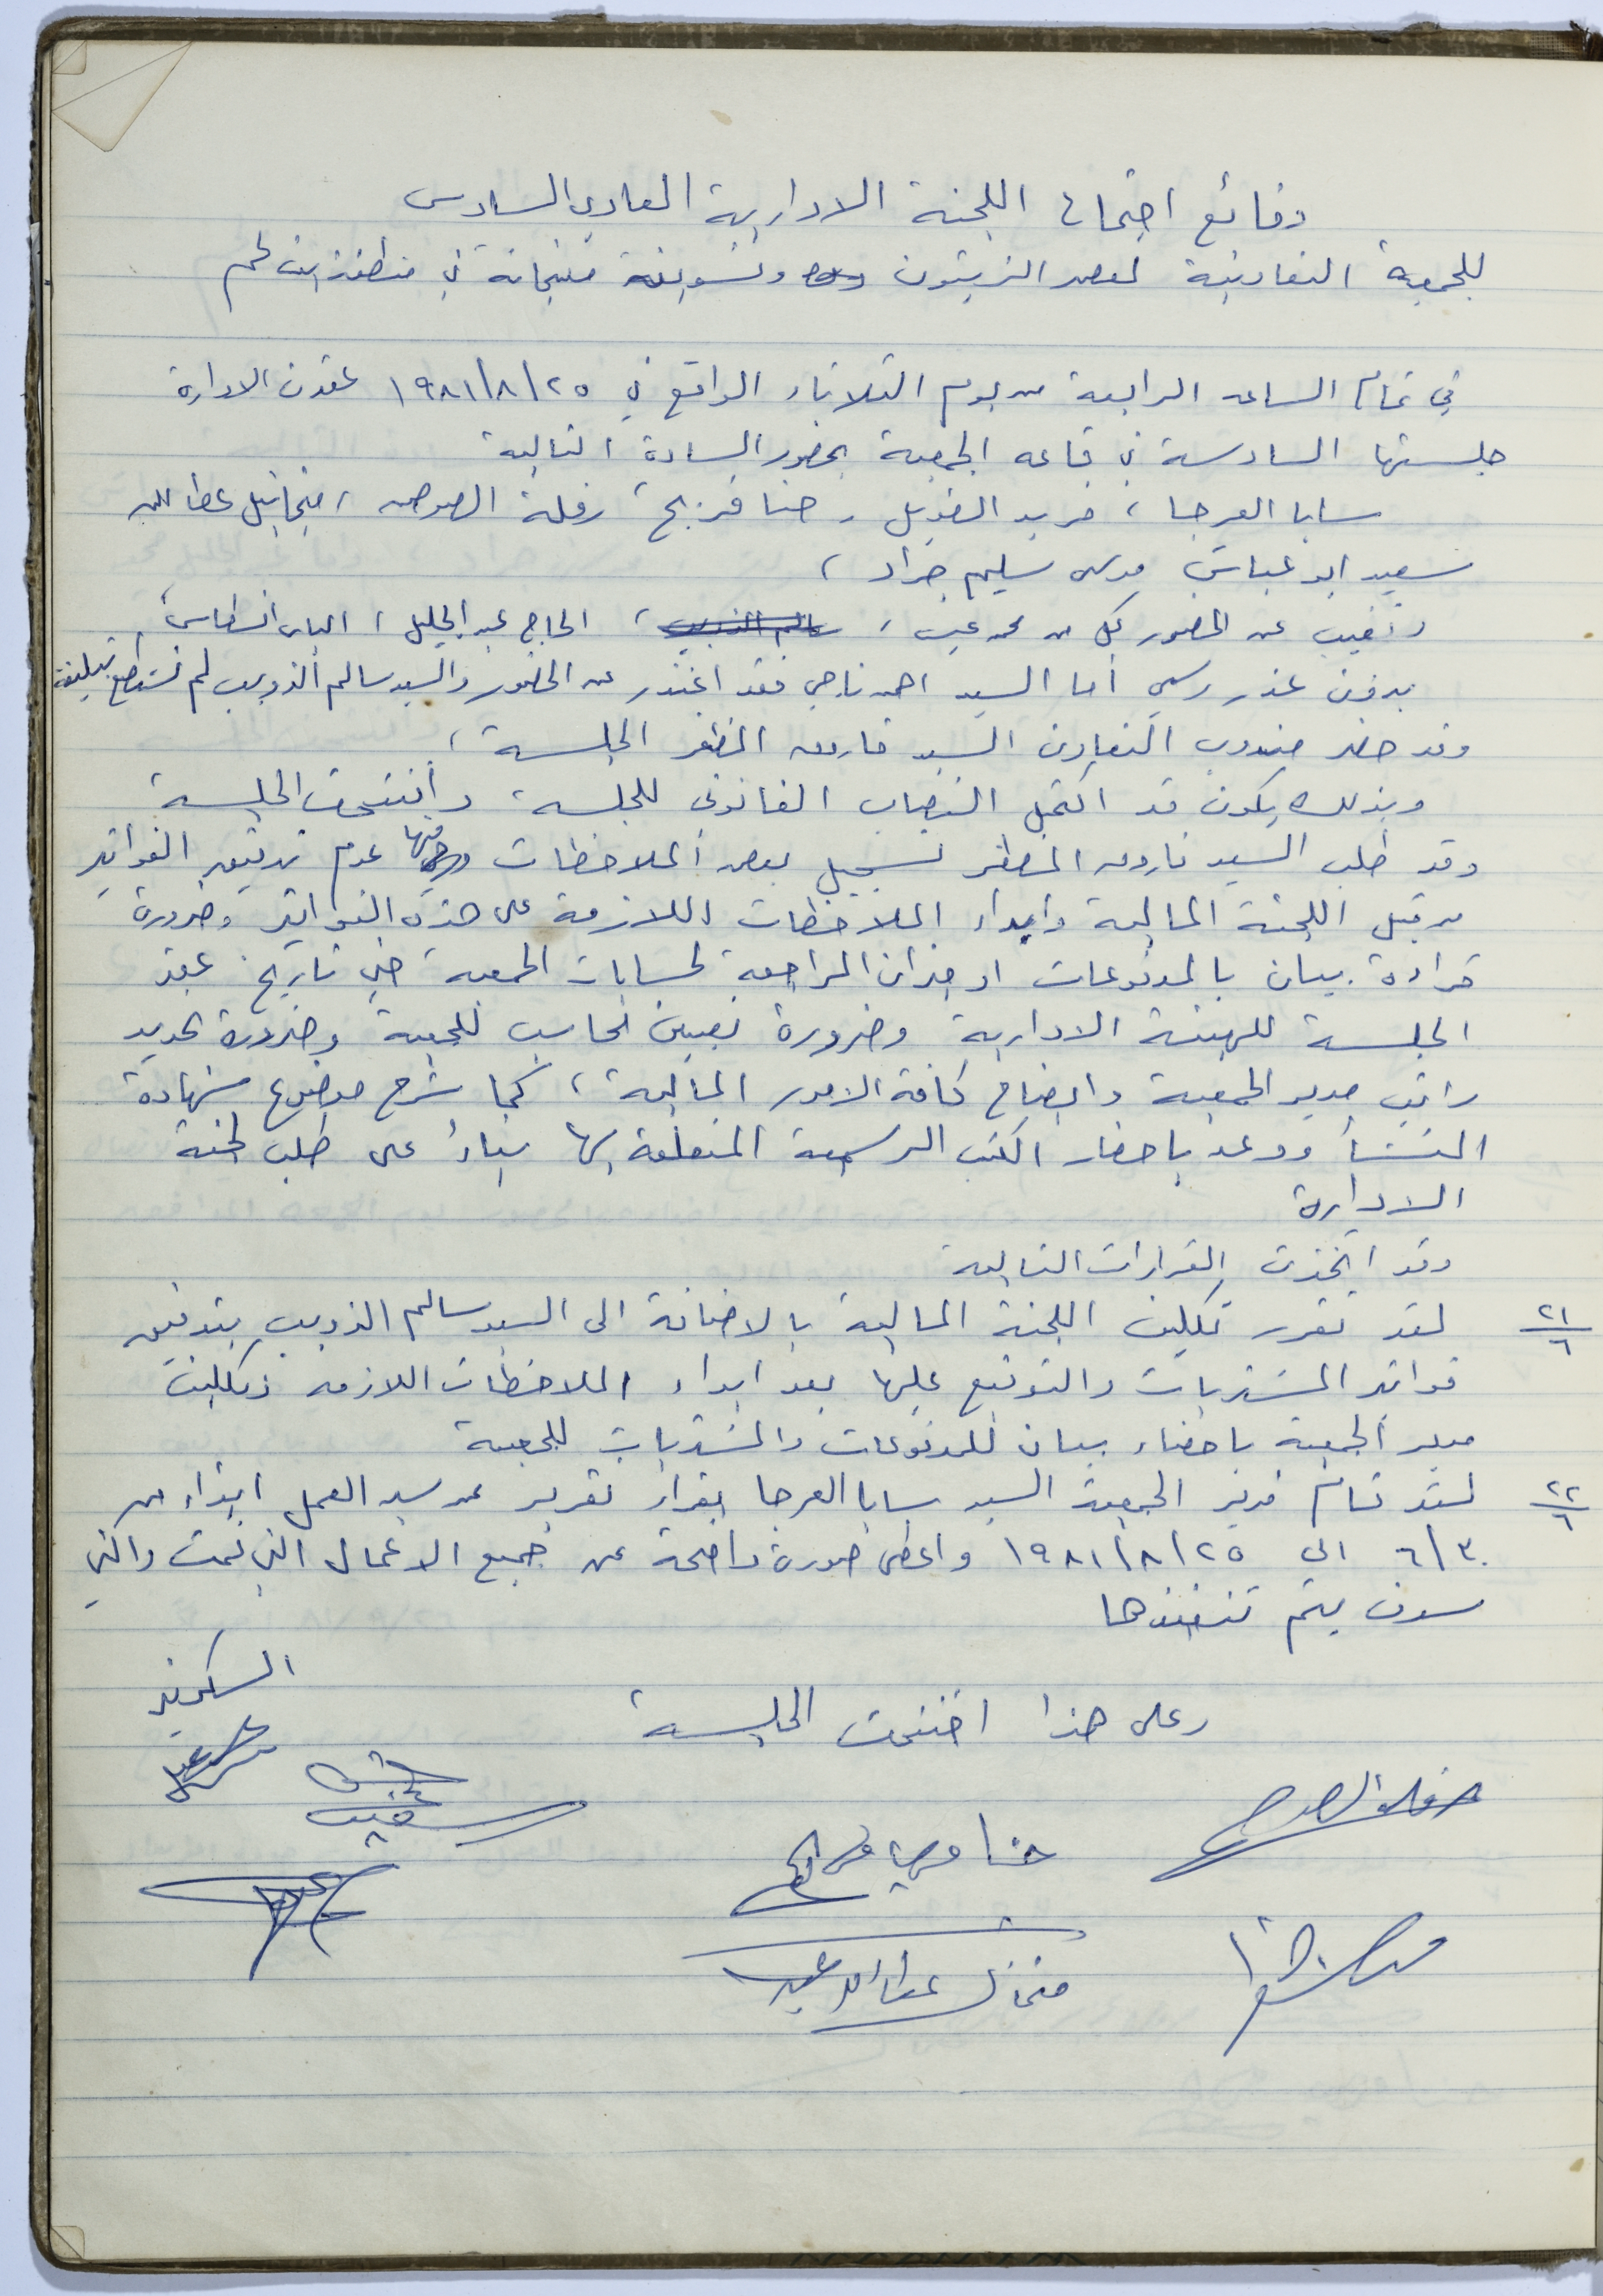 وقائع اجتماع اللجنة الادارية العادي السادس
للجمعية التعاونية لعصر الزيتون وتسويق منتجاته في منطقة بيت لحم
في تمام الساعه الرابعة من يوم الثلاثاء الواقع في ٢٥/٨/١٩٨١ عقدت الادارة
جلستها السادسة في قاعه الجمعية بحضور السادة التالية
سابا العرجا ، فريد الطويل ، حنا فريج ، رفلة الصوص ، ميخائيل عطالله
سعيد ابو عباس موسى سليم جراد ،
وتغيب عن الحضور كل من محمد عيسى ، الحاج عبد الجليل ، الياس انسطاس ،
بدون عذر رسمي أما السيد احمد ناجي فقد اعتذر عن الحضور والسيد سالم الذويب لم نستطع تبليغه
وقد حضر مندوب التعاون السيد فاروق المظفر الجلسة ،
وبذلك يكون قد اكتمل النصاب القانوني للجلسة ، وأفتتحت الجلسة
وقد طلب السيد فاروق المظفر تسجيل بعض الملاحظات ومنها عدم تدقيق الفواتير
من قبل اللجنة المالية وابداء الملاحظات اللازمة على هذه الفواتير وضرورة
قراءة بيان بالمدفوعات او ميزان المراجعة لحسابات الجمعية حتى تاريخ عقد
الجلسة للهيئة الادارية وضرورة تعيين محاسب للجمعية وضرورة تحديد
راتب مدير الجمعية وايضاح كافة الامور المالية ، كما شرح موضوع شهادة
المنشأ ووعد باحضار الكتب الرسمية المتعلقة بها بناءً على طلب لجنة
الادارة
وقد اتخذت القرارات التالية
٢١/٦ لقد تقرر تكليف اللجنة المالية بالاضافة الى السيد سالم الذويب بتدقيق
فواتير المشتريات والتوقيع عليها بعد ابداء الملاحظات اللازمه وتكليف
مدير الجمعية باحضار بيان للمدفوعات والمشتريات للجمعية
٢٢/٦ لقد قام مدير الجمعية السيد سابا العرجا بقراءة تقرير عن سير العمل ابتداء من
٦/٣٠ الى ٢٥/٨/١٩٨١ واعطى صورة واضحة عن جميع الاعمال التي تمت والتي
سوف يتم تنفيذها
وعلى هذا اختتمت الجلسة ،
السكرتير
رفله الصوص